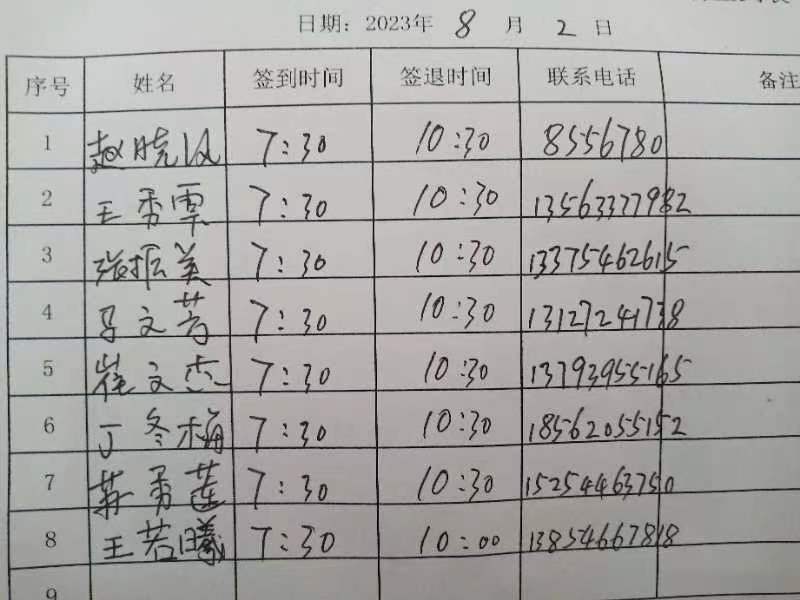 日期：2023年 8 月 2 日
序号 姓名 签到时间 签退时间 联系电话 备注
1 赵晓风 7:30 10:30 8556780
2 王秀粟 7:30 10:30 13563377982
3 张振美 7:30 10:30 13375462615
4 马文芳 7:30 10:30 13127241738
5 崔文杰 7:30 10:30 13793955165
6 丁冬梅 7:30 10:30 18562055152
7 靳秀莲 7:30 10:30 15254463750
8 王若曦 7:30 10:00 13854667818
9